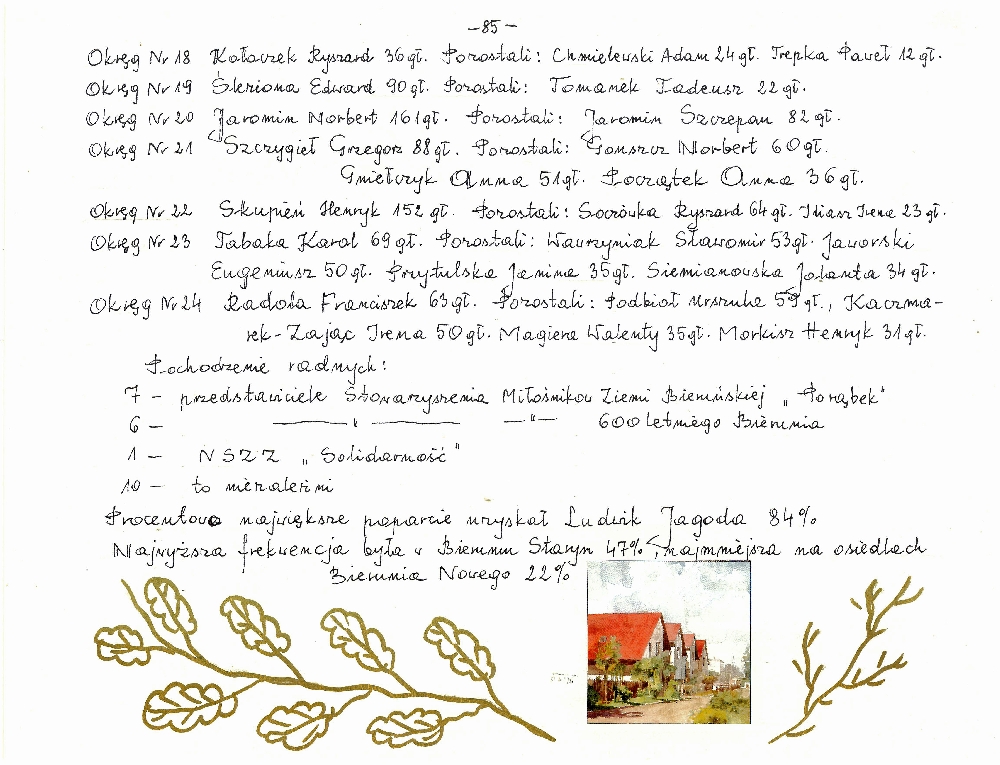 -85-
Okręg Nr 18 Kołoczek Ryszard 36 gł. Pozostali: Chmielewski Adam 24 gł. Trepka Paweł 12 gł.
Okręg Nr 19 Śleziona Edward 90 gł. Pozostali: Tomanek Tadeusz 22 gł.
Okręg Nr 20 Jaromin Norbert 161 gł. Pozostali: Jaromin Szczepan 82 gł.
Okręg Nr 21 Szczygieł Grzegorz 88 gł. Pozostali: Gonszcz Norbert 60 gł.
Gniełczyk Anna 51 gł. Początek Anna 36 gł.
Okręg Nr 22 Skupień Henryk 152 gł. Pozostali: Socrówka Ryszard 64 gł. Iliasz Irena 23 gł.
Okręg Nr 23 Tabaka Karol 69 gł. Pozostali: Wawrzyniak Sławomir 53 gł. Jaworski
Eugeniusz 50 gł. Przytulska Janina 35 gł. Siemianowska Jolanta 34 gł.
Okręg Nr 24 Radoła Franciszek 63 gł. Pozostali: Podbioł Urszula gł., Kaczma-
rek-Zając Irena 50 gł. Magiera Walenty 35 gł. Morkisz Henryk 31 gł.
Pochodzenie radnych:
7 - przedstawiciele Stowarzyszenia Miłośników Ziemi Bieruńskiej „Porąbek"
6 - —— " —— — " — 600 letniego Bierunia
1 - NSZZ „Solidarność"
10 - to niezależni
Procentowo największe poparcie uzyskał Ludwik Jagoda 84%
Najwyższa frekwencja była w Bieruniu Starym 47%, najmniejsza na osiedlach
Bierunia Nowego 22%